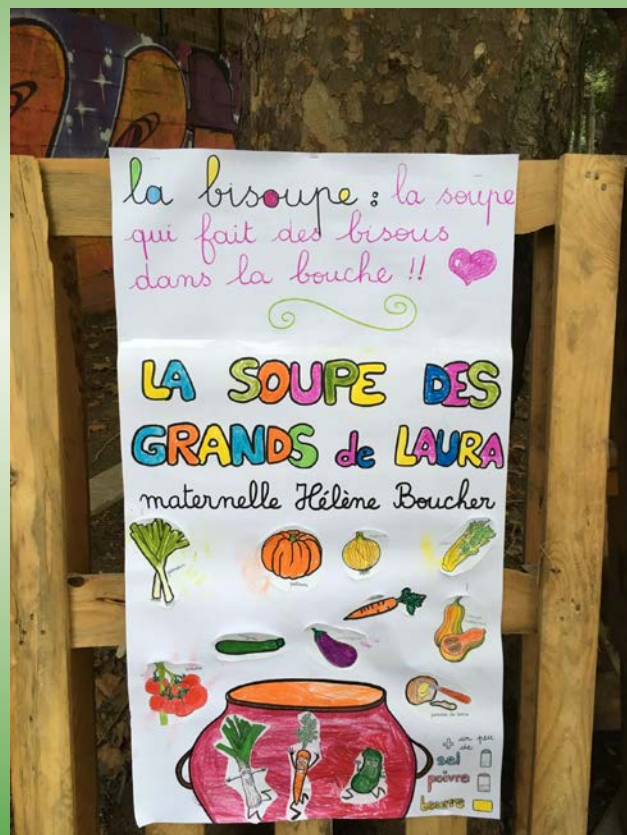 la bisoupe : la soupe
qui fait des bisous
dans la bouche !!
LA SOUPE DES
GRANDS de LAURA
maternelle Hélène Boucher
pomme de terre
+ un peu
de
sel
poivre
beurre